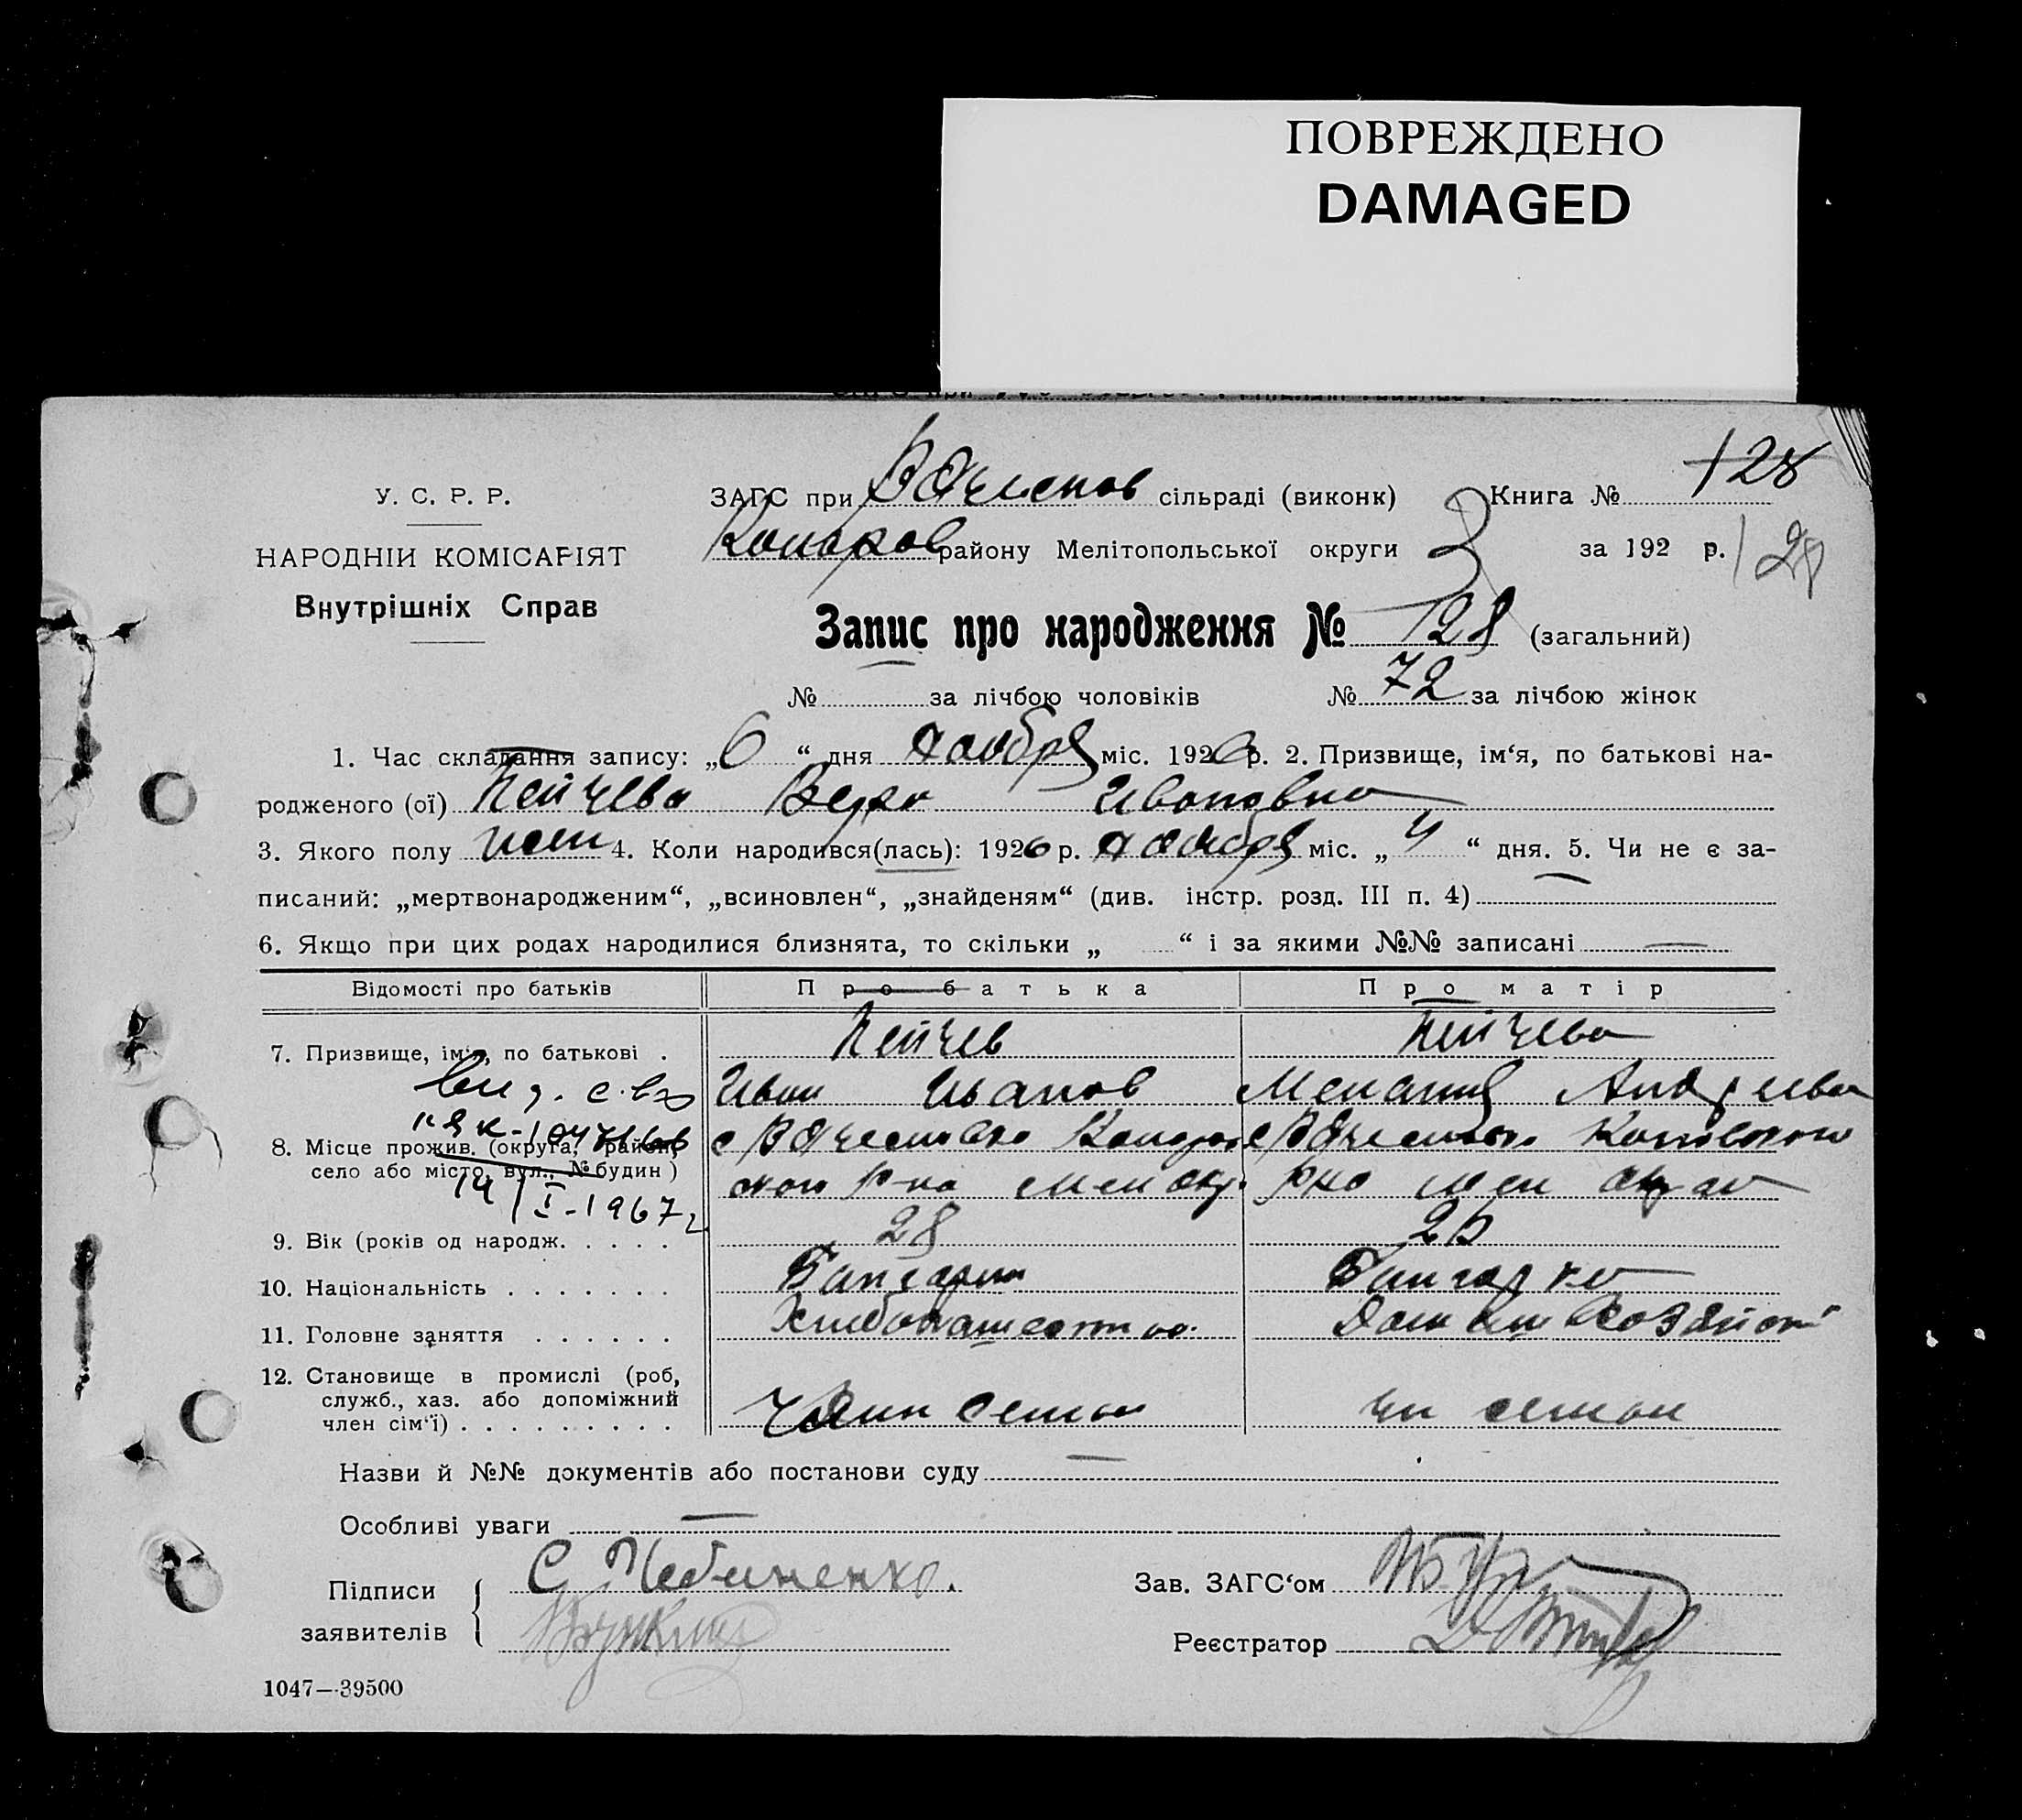 ПОВРЕЖДЕНО
DAMAGED
128
У. С. Р. Р.
ЗАГС при сільраді (виконк) Книга №
НАРОДНІЙ КОМІСАРІЯТ
району Мелітопольської округи за 192 р.
128
Внутрішніх Справ
Запис про народження № 128 (загальний)
№ за лічбою чоловіків № 72 за лічбою жінок
1. Час складання запису: „6“ дня ноября міс. 1926 р. 2. Призвище, ім‘я, по батькові на-
родженого (ої) Пейчева Вера Ивановна
3. Якого полу жен 4. Коли народився(лась): 1926 р. ноября міс. „4“ дня. 5. Чи не є за-
писаний: „мертвонародженим“, „всиновлен“, „знайденям“ (див. інстр. розд. III п. 4) —
6. Якщо при цих родах народилися близнята, то скільки „ “ і за якими №№ записані —
Відомості про батьків Про батька Про матір
7. Призвище, ім‘я, по батькові . Пейчев Пейчева
Иван Иванов Андреева
8. Місце прожив. (округа, район,
село або місто, вул., № будин)
14/I-1967 г
9. Вік (років од народж. . . . . 28 25
10. Національність . . . . . . . Болгарин Болгарка
11. Головне заняття . . . . . . Хлебопашество
12. Становище в промислі (роб,
служб., хаз. або допоміжний
член сім‘ї) . . . . . . . . . Член семьи чл семьи
Назви й №№ документів або постанови суду —
Особливі уваги —
Підписи
заявителів
Зав. ЗАГС‘ом
Реєстратор
1047—39500